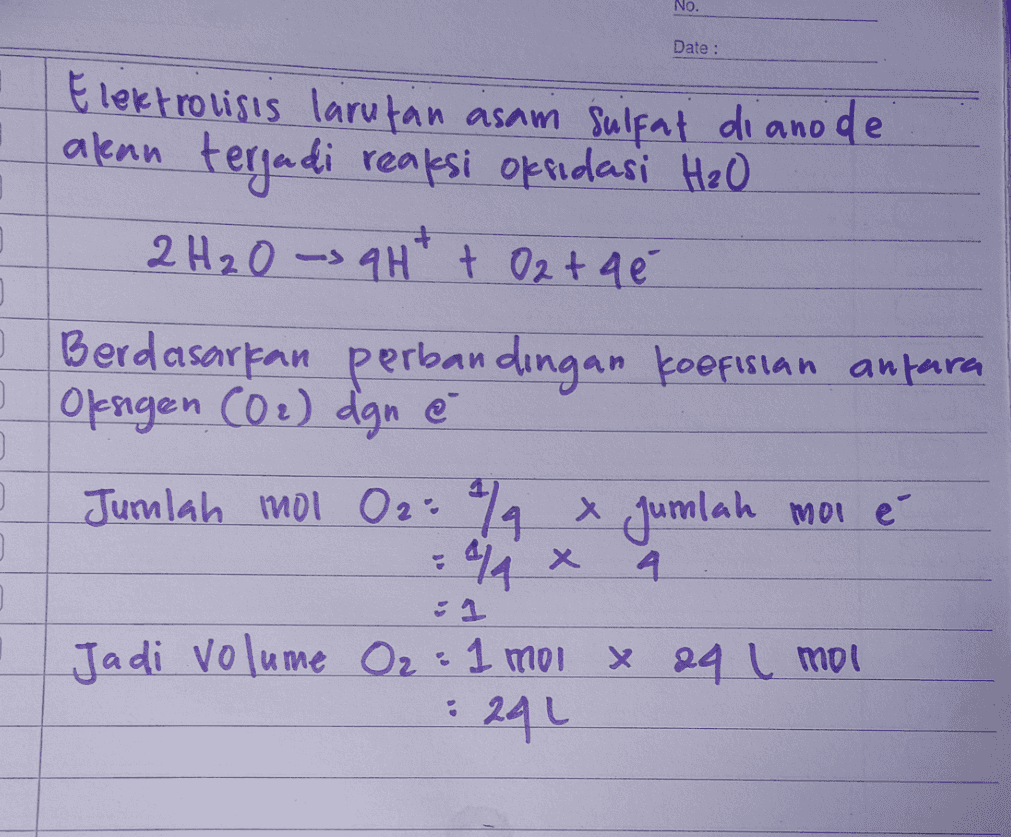 No.
Date :
Elektrolisis larutan asam sulfat di anode
akan terjadi reaksi oksidasi H₂O
2 H₂O → 4H⁺ + O₂ + 4e⁻
Berdasarkan perbandingan koefisian antara
Oksigen (O₂) dgn e⁻
Jumlah mol O₂ = 1/4 x jumlah mol e⁻
= 1/4 x 4
= 1
Jadi volume O₂ = 1 mol x 24 L mol
= 24 L